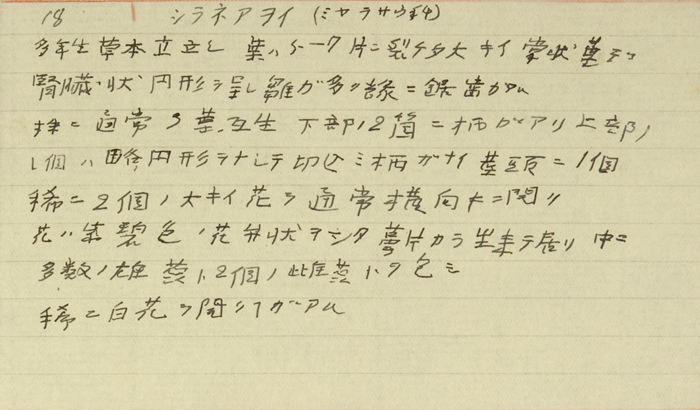 18 シラネアヲイ (ミヤラサウ科)
多年生草本立立シ 葉ハ5ー7片ニ裂ケタ大キイ掌状葉デ
腎臓状円形ヲ呈シ皺ガ多ク縁ニ鋸歯ガアル
通常3葉互生 下部ノ2箇ニ柄ガアリ上部ノ
1個ハ円形ヲナシテ切込ミ柄ガナイ 茎頭ニ1個
稀ニ2個ノ大キイ花ヲ通常横向キニ開ク
花ハ紫碧色ノ花弁状ヲシタ萼片カラ出来テ居リ中ニ
多数ノ雄蕊ト2個ノ雌蕊ト
稀ニ白花ヲ開クコトガアル